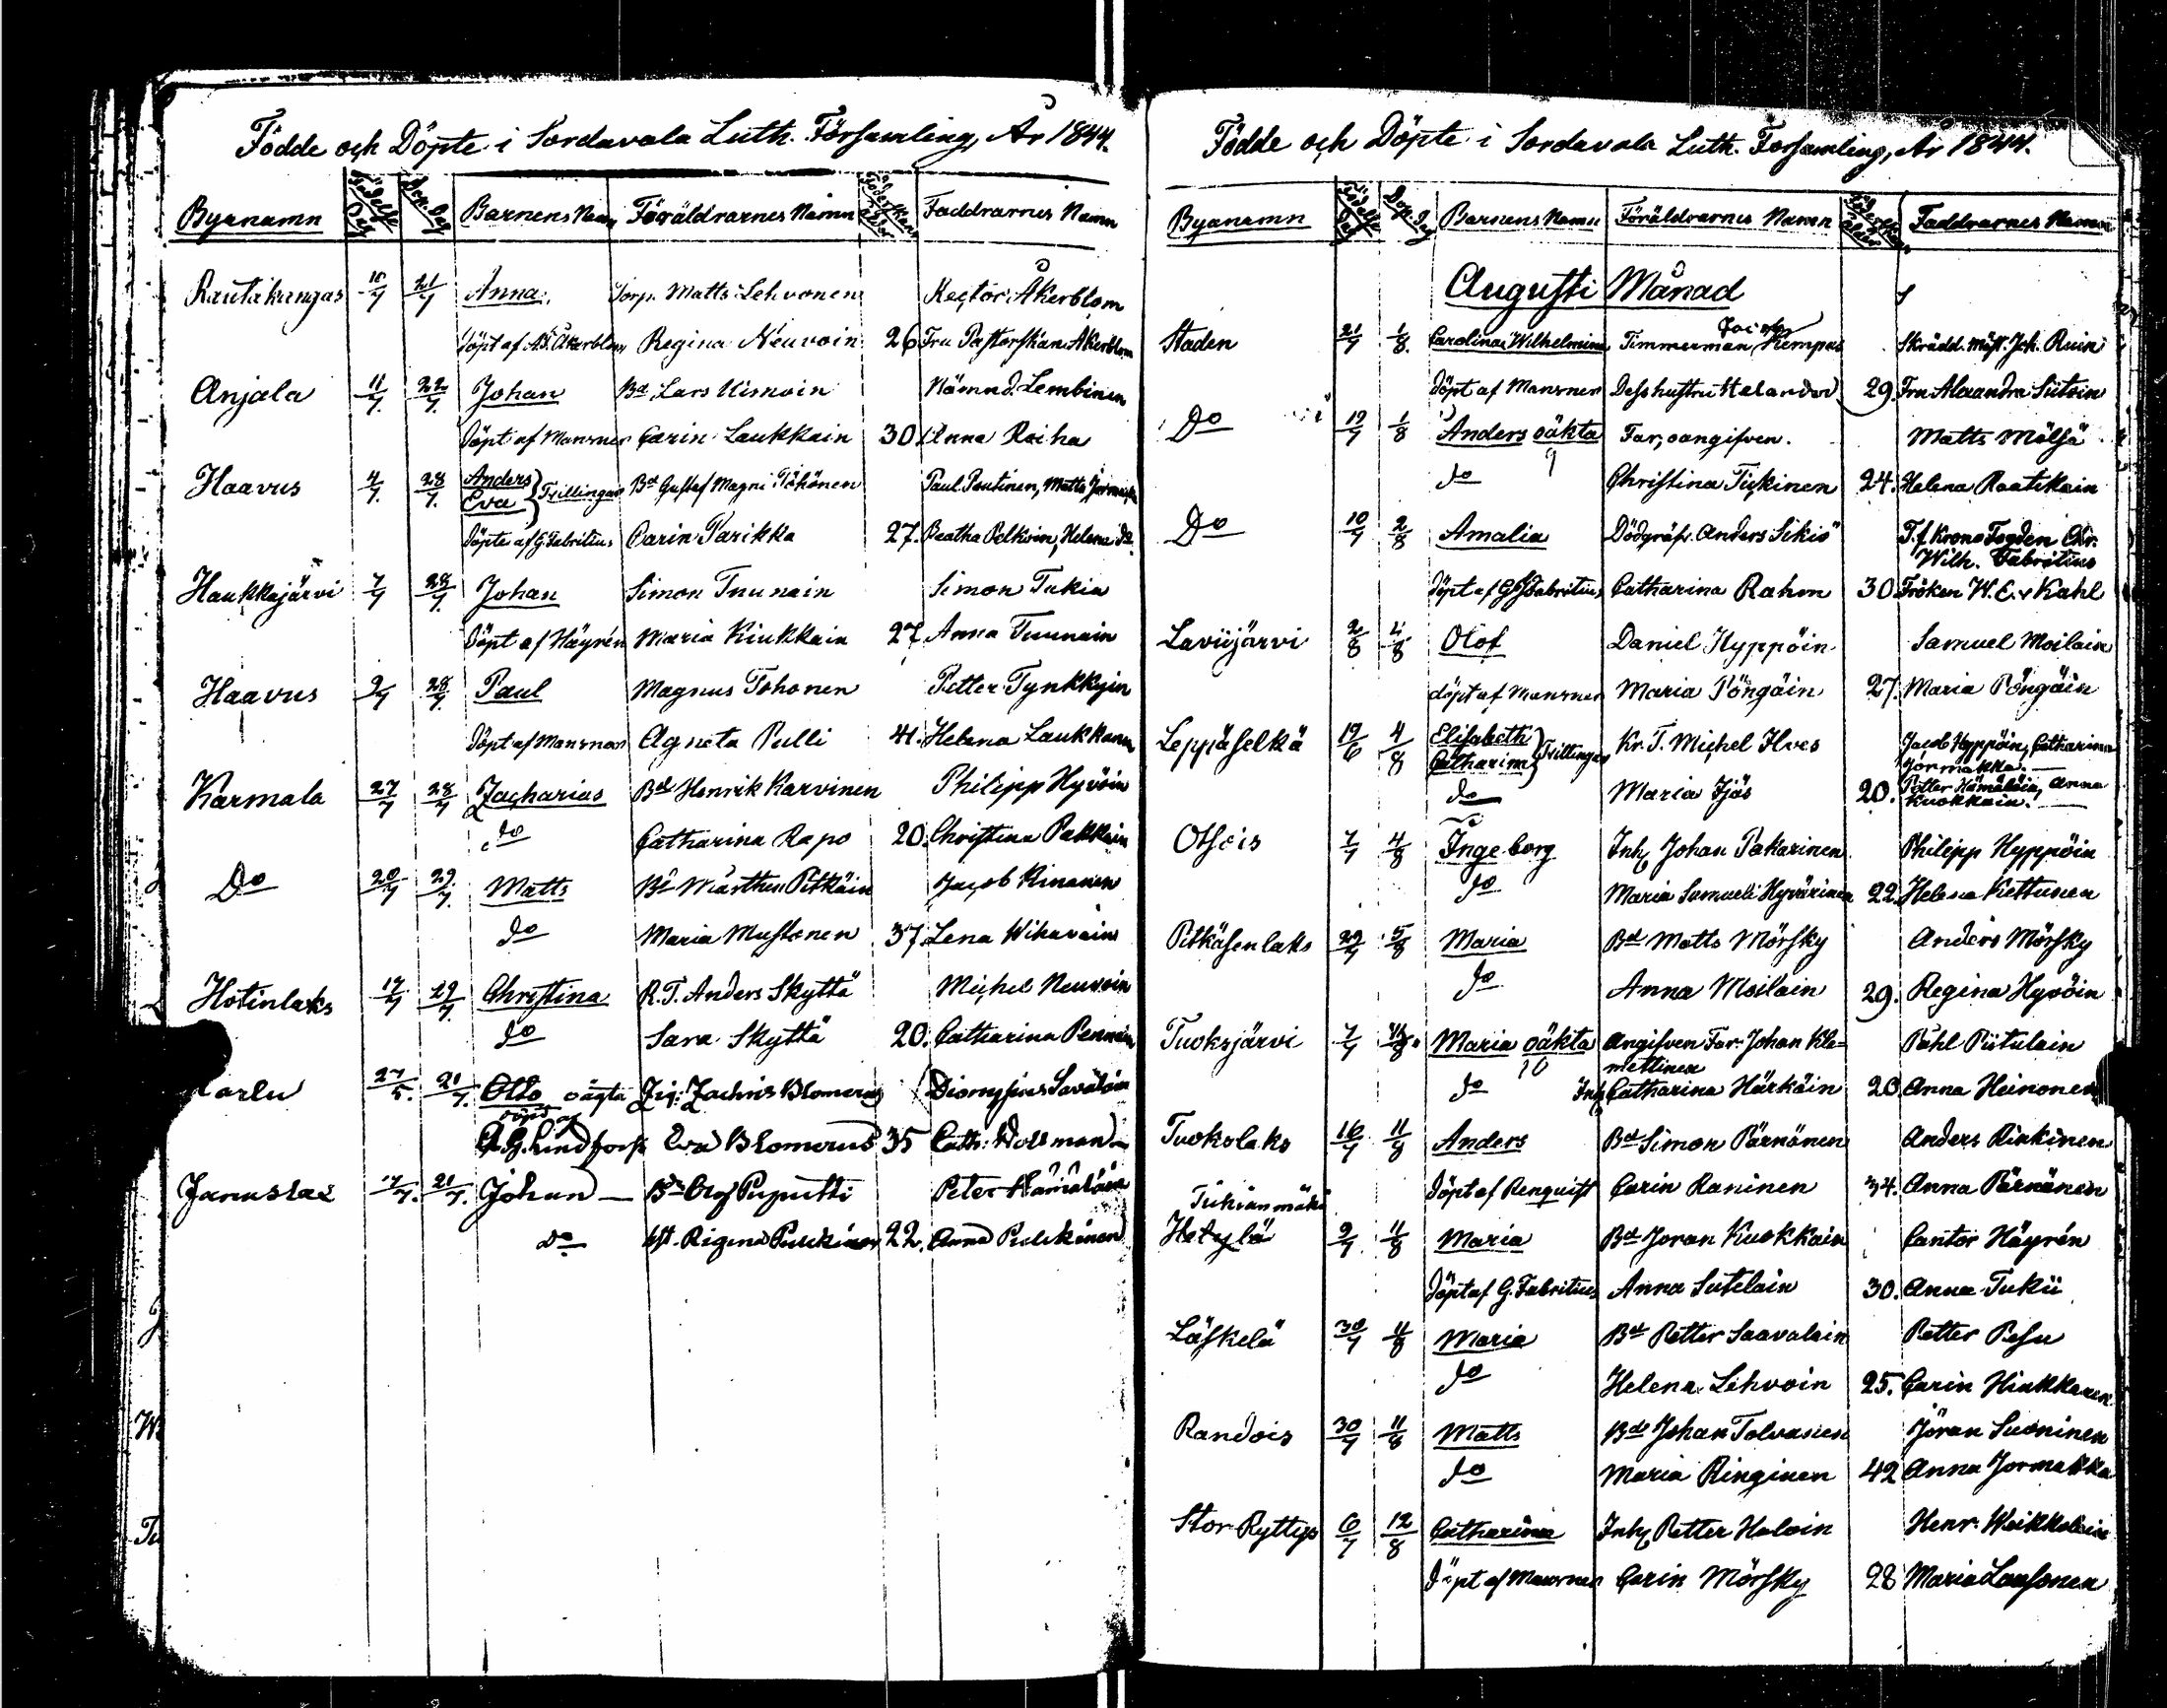 Födde och Döpte i Sordavala Luth. Församling, År 1844.
Byanamn Födelse Dag Döp. Dag Barnens Namn Föräldrarnes Namn Föderskans ålder Faddrarnes Namn
Rautakangas 10/7 21/7 Anna. Torp. Matts Lehvonen Rector Åkerblom
döpt af A.F. Åkerblom Regina Neuvoin 26 Fru Pastorskan Åkerblom
Anjala 11/7. 22/7. Johan Bd Lars Uimoin Nämnd. Lembinen
döpt af Mansner Carin Laukkain 30. Anna Raiha
Haavus 4/7. 28/7. Anders Eva } Tvillingar Bd Gustaf Magni Töhönen Paul Pautinen, Matts Jormakka
döpte af G. Fabritius Carin Parikka 27. Beatha Pelkoin, Helena do.
Haukkajärvi 7/7 28/7. Johan Simon Tuunain Simon Tukia
döpt af Häyrén Maria Kiukkain 27. Anna Tuunain
Haavus 9/7 28/7 Paul Magnus Tohonen Petter Tynkkyin
döpt af Mansner Agneta Pulli 41. Helena Laukkanen
Karmala 27/7 28/7 Zacharias Bd Henrik Karvinen Philipp Hyvöin
do Catharina Rapo 20. Christina Pakkain
Do 20/7 29/7. Matts Bd Marthen Pitkäin Jacob Kinanen
do Maria Mustonen 37. Lena Wihavain
Hotinlaks 17/7 29/7. Christina R.T. Anders Skyttä Michel Neuvoin
do Sara Skyttä 20. Catharina Pennain
arlu 27/5. 21/7. Otto oägta Zachris Blomerus Dionysius Savolain
döpt af
A.G. Lindfors Eva Blomerus 35 Cath: Wollman
Janaslax 17/7. 21/7. Johan Bd Olof Puputti Peter Hämäläin
do Hst. Regina Pulckinen 22. Anna Pulckinen
Födde och Döpte i Sordavala Luth. Församling, År 1844.
Byanamn Födelse Dag Döp. Dag Barnens Namn Föräldrarnes Namn Föderskans ålder Faddrarnes Namn
Augusti Månad
Staden 21/7 1/8. Carolina Wilhelmina Timmerman Jacob Kempas Skrädd. Mäst. Joh. Ruin
döpt af Mansner Dess hustru Halander 29. Fru Alexandra Siitoin
Do 19/7 1/8 Anders oäkta Far, oangifven. Matts Mölsä
9
do Christina Tiikinen 24. Helena Raatikain
Do 10/7 2/8 Amalia Dödgräfv. Anders Sikiö T.f. Krono Fogden Chr. Wilh. Fabritius
döpt af G. Fabritius Catharina Rahm 30 Fröken W. E. v Kahl
Laviijärvi 2/8 4/8 Olof Daniel Hyppöin Samuel Moilain
döpt af Mansner Maria Pöngäin 27. Maria Pöngäin
Leppäselkä 19/6 4/8 Elisabeth Catharina } Tvillingar Kr. T. Michel Ilves Jacob Hyppöin, Catharina Jormakka.
do Maria Ijäs 20. Petter Hämäläin, Anna Kuokkain.
Otsois 7/7 4/8 Ingeborg Inh. Johan Pakarinen Philipp Hyppöin
do Maria Samueli Hyvärinen 22. Helena Kettunen
Pitkäsenlaks 29/7 5/8 Maria Bd Matts Mörsky Anders Mörsky
do Anna Moilain 29. Regina Hyvöin
Tuoksjärvi 7/7 Maria oäkta Angifven Far: Johan Kle= Påhl Piitulain
10 mettinen
do Inh. Catharina Härkäin 20. Anna Heinonen
Tuokslaks 16/7 11/8 Anders Bd Simon Pärnänen Anders Rinkinen
döpt af Renquist Carin Raninen 34. Anna Pärnänen
Tukianmäki
Hotylä 9/7 11/8 Maria Bd Joran Kuokkain Cantor Häyrén
döpt af G. Fabritius Anna Sutelain 30. Anna Tukii
Läskelä 30/7 11/8 Maria Bd Petter Saavalain Petter Pesu
do Helena Lehvoin 25. Carin Hiukkanen
Randois 30/7 11/8 Matts Bd Johan Tolvanen Jöran Suoninen
do Maria Ringinen 42 Anna Jormakka
Stor Ryttys 6/7 12/8 Catharina Inh. Petter Haloin Henr. Weikkolain
döpt af Mansner Carin Mörsky 28 Maria Laasonen